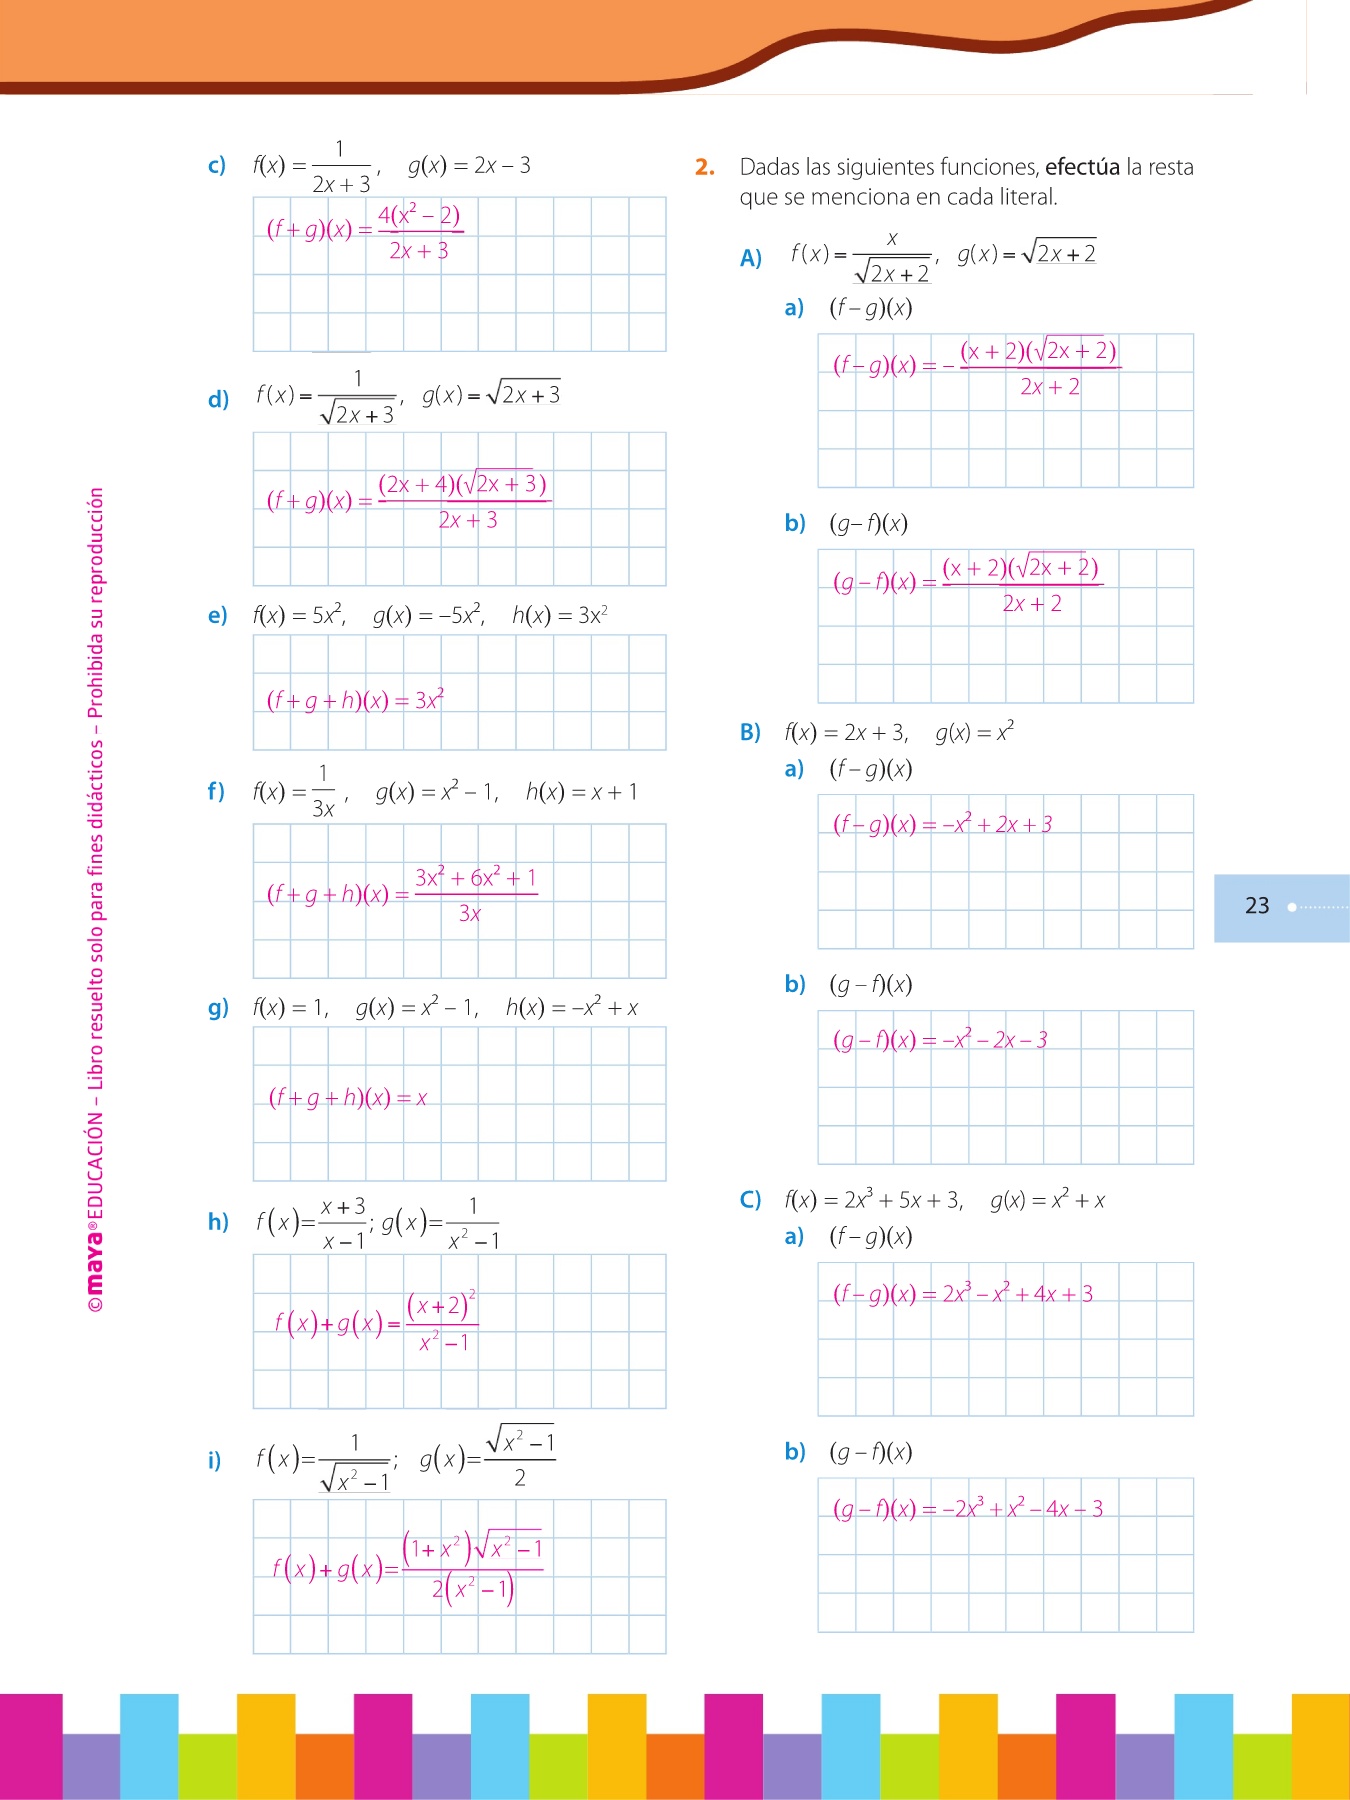 c) f(x) = 1/(2x + 3), g(x) = 2x – 3
(f + g)(x) = 4(x² – 2)/(2x + 3)
d) f(x) = 1/√(2x + 3), g(x) = √(2x + 3)
(f + g)(x) = (2x + 4)(√(2x + 3))/(2x + 3)
e) f(x) = 5x², g(x) = –5x², h(x) = 3x²
(f + g + h)(x) = 3x²
f) f(x) = 1/(3x), g(x) = x² – 1, h(x) = x + 1
(f + g + h)(x) = (3x² + 6x² + 1)/(3x)
g) f(x) = 1, g(x) = x² – 1, h(x) = –x² + x
(f + g + h)(x) = x
h) f(x) = (x + 3)/(x – 1); g(x) = 1/(x² – 1)
f(x) + g(x) = (x + 2)²/(x² – 1)
i) f(x) = 1/√(x² – 1); g(x) = √(x² – 1)/2
f(x) + g(x) = (1 + x²)√(x² – 1)/(2(x² – 1))
2. Dadas las siguientes funciones, efectúa la resta
que se menciona en cada literal.
A) f(x) = x/√(2x + 2), g(x) = √(2x + 2)
a) (f – g)(x)
(f – g)(x) = – (x + 2)(√(2x + 2))/(2x + 2)
b) (g – f)(x)
(g – f)(x) = (x + 2)(√(2x + 2))/(2x + 2)
B) f(x) = 2x + 3, g(x) = x²
a) (f – g)(x)
(f – g)(x) = –x² + 2x + 3
b) (g – f)(x)
(g – f)(x) = –x² – 2x – 3
C) f(x) = 2x³ + 5x + 3, g(x) = x² + x
a) (f – g)(x)
(f – g)(x) = 2x³ – x² + 4x + 3
b) (g – f)(x)
(g – f)(x) = –2x³ + x² – 4x – 3
23
©maya®EDUCACIÓN – Libro resuelto solo para fines didácticos – Prohibida su reproducción